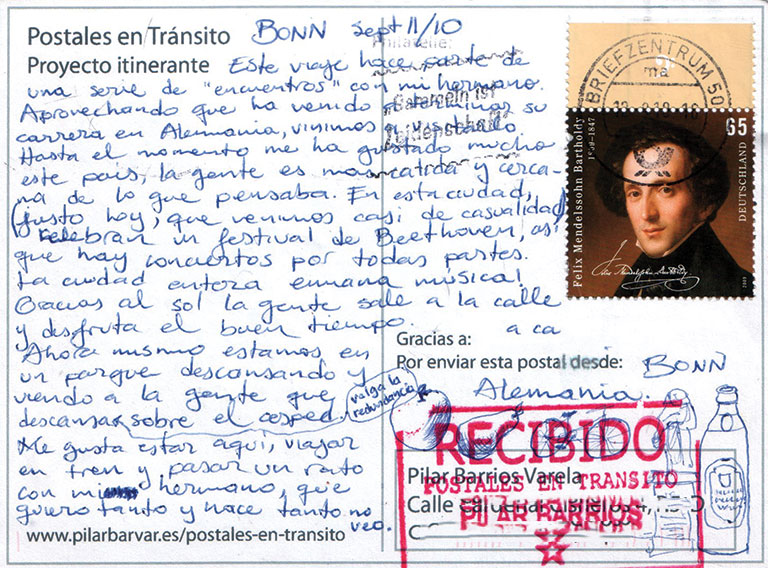 Postales en Tránsito BONN Sept 11/10
Proyecto itinerante Este viaje hace parte de
una serie de "encuentros" con mi hermano.
Aprovechando que ha venido a terminar su
carrera en Alemania, vinimos a visitarlo
Hasta el momento me ha gustado mucho
este país, la gente es mas calida y cerca-
na de lo que pensaba. En esta ciudad,
(justo hoy, que venimos casi de casualidad)
celebran un festival de Beethoven, asi
que hay conciertos por todas partes.
La ciudad entera emana musica!
Gracias al sol la gente sale a la calle
y disfruta el buen tiempo.
Ahora mismo estamos en
un parque descansando y
viendo a la gente que
descansa sobre el cesped.
valga la
redundancia
Me gusta estar aqui, viajar
en tren y pasar un rato
con mi hermano, que
quiero tanto y hace tanto no
veo.
www.pilarbarvar.es/postales-en-transito
Philatelie:
BRIEFZENTRUM 50
ma
65
DEUTSCHLAND
Felix Mendelssohn Bartholdy
1809–1847
a ca
Gracias a:
Por enviar esta postal desde: BONN
Alemania.
RECIBIDO
Pilar Barrios Varela
POSTALES EN TRANSITO
Calle
PILAR BARRIOS